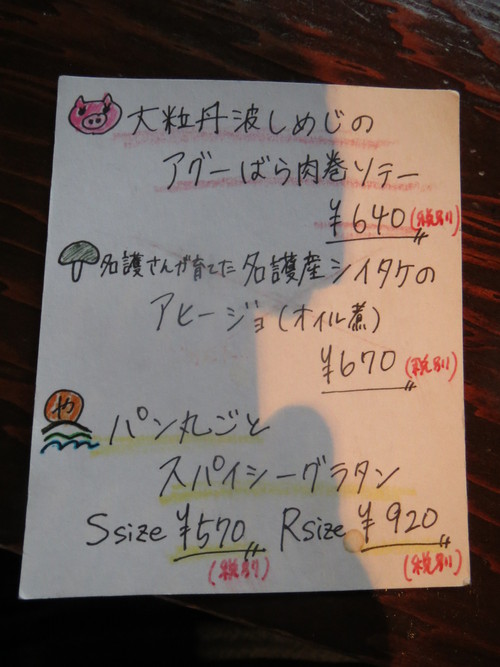 大粒丹波しめじの
アグーばら肉巻ソテー
¥640(税別)
名護さんが育てた名護産シイタケの
アヒージョ(オイル煮)
¥670(税別)
パン丸ごと
スパイシーグラタン
Ssize ¥570 Rsize ¥920
(税別) (税別)